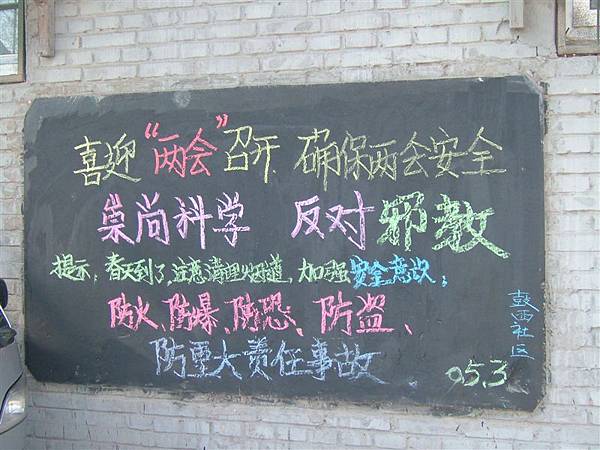 喜迎“两会”召开 确保两会安全
崇尚科学 反对邪教
提示:春天到了,注意清理烟道,加强安全意识;
防火、防爆、防恐、防盗、
防重大责任事故
鼓西社区
05.3